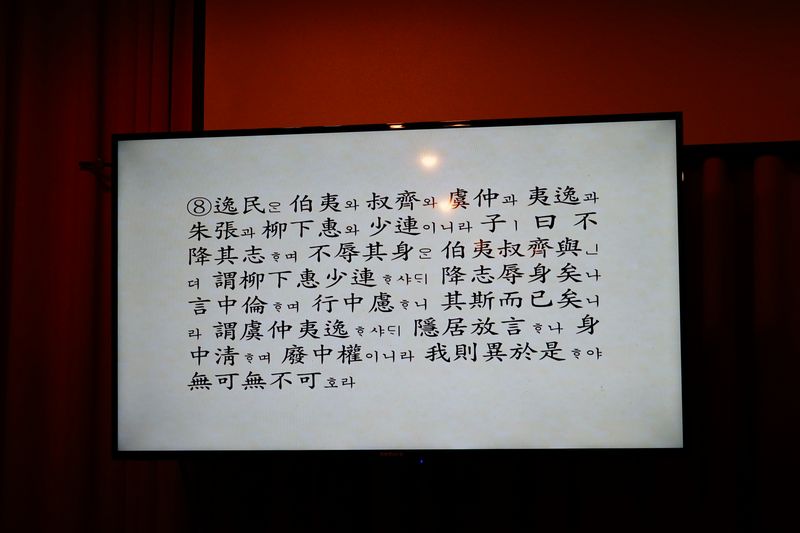 ⑧逸民은 伯夷와 叔齊와 虞仲과 夷逸과
朱張과 柳下惠와 少連이니라 子ㅣ 曰 不
降其志ᄒᆞ며 不辱其身은 伯夷叔齊與ㄴ
뎌 謂柳下惠少連ᄒᆞ샤ᄃᆡ 降志辱身矣나
言中倫ᄒᆞ며 行中慮ᄒᆞ니 其斯而已矣니
라 謂虞仲夷逸ᄒᆞ샤ᄃᆡ 隱居放言ᄒᆞ나 身
中淸ᄒᆞ며 廢中權이니라 我則異於是ᄒᆞ야
無可無不可호라